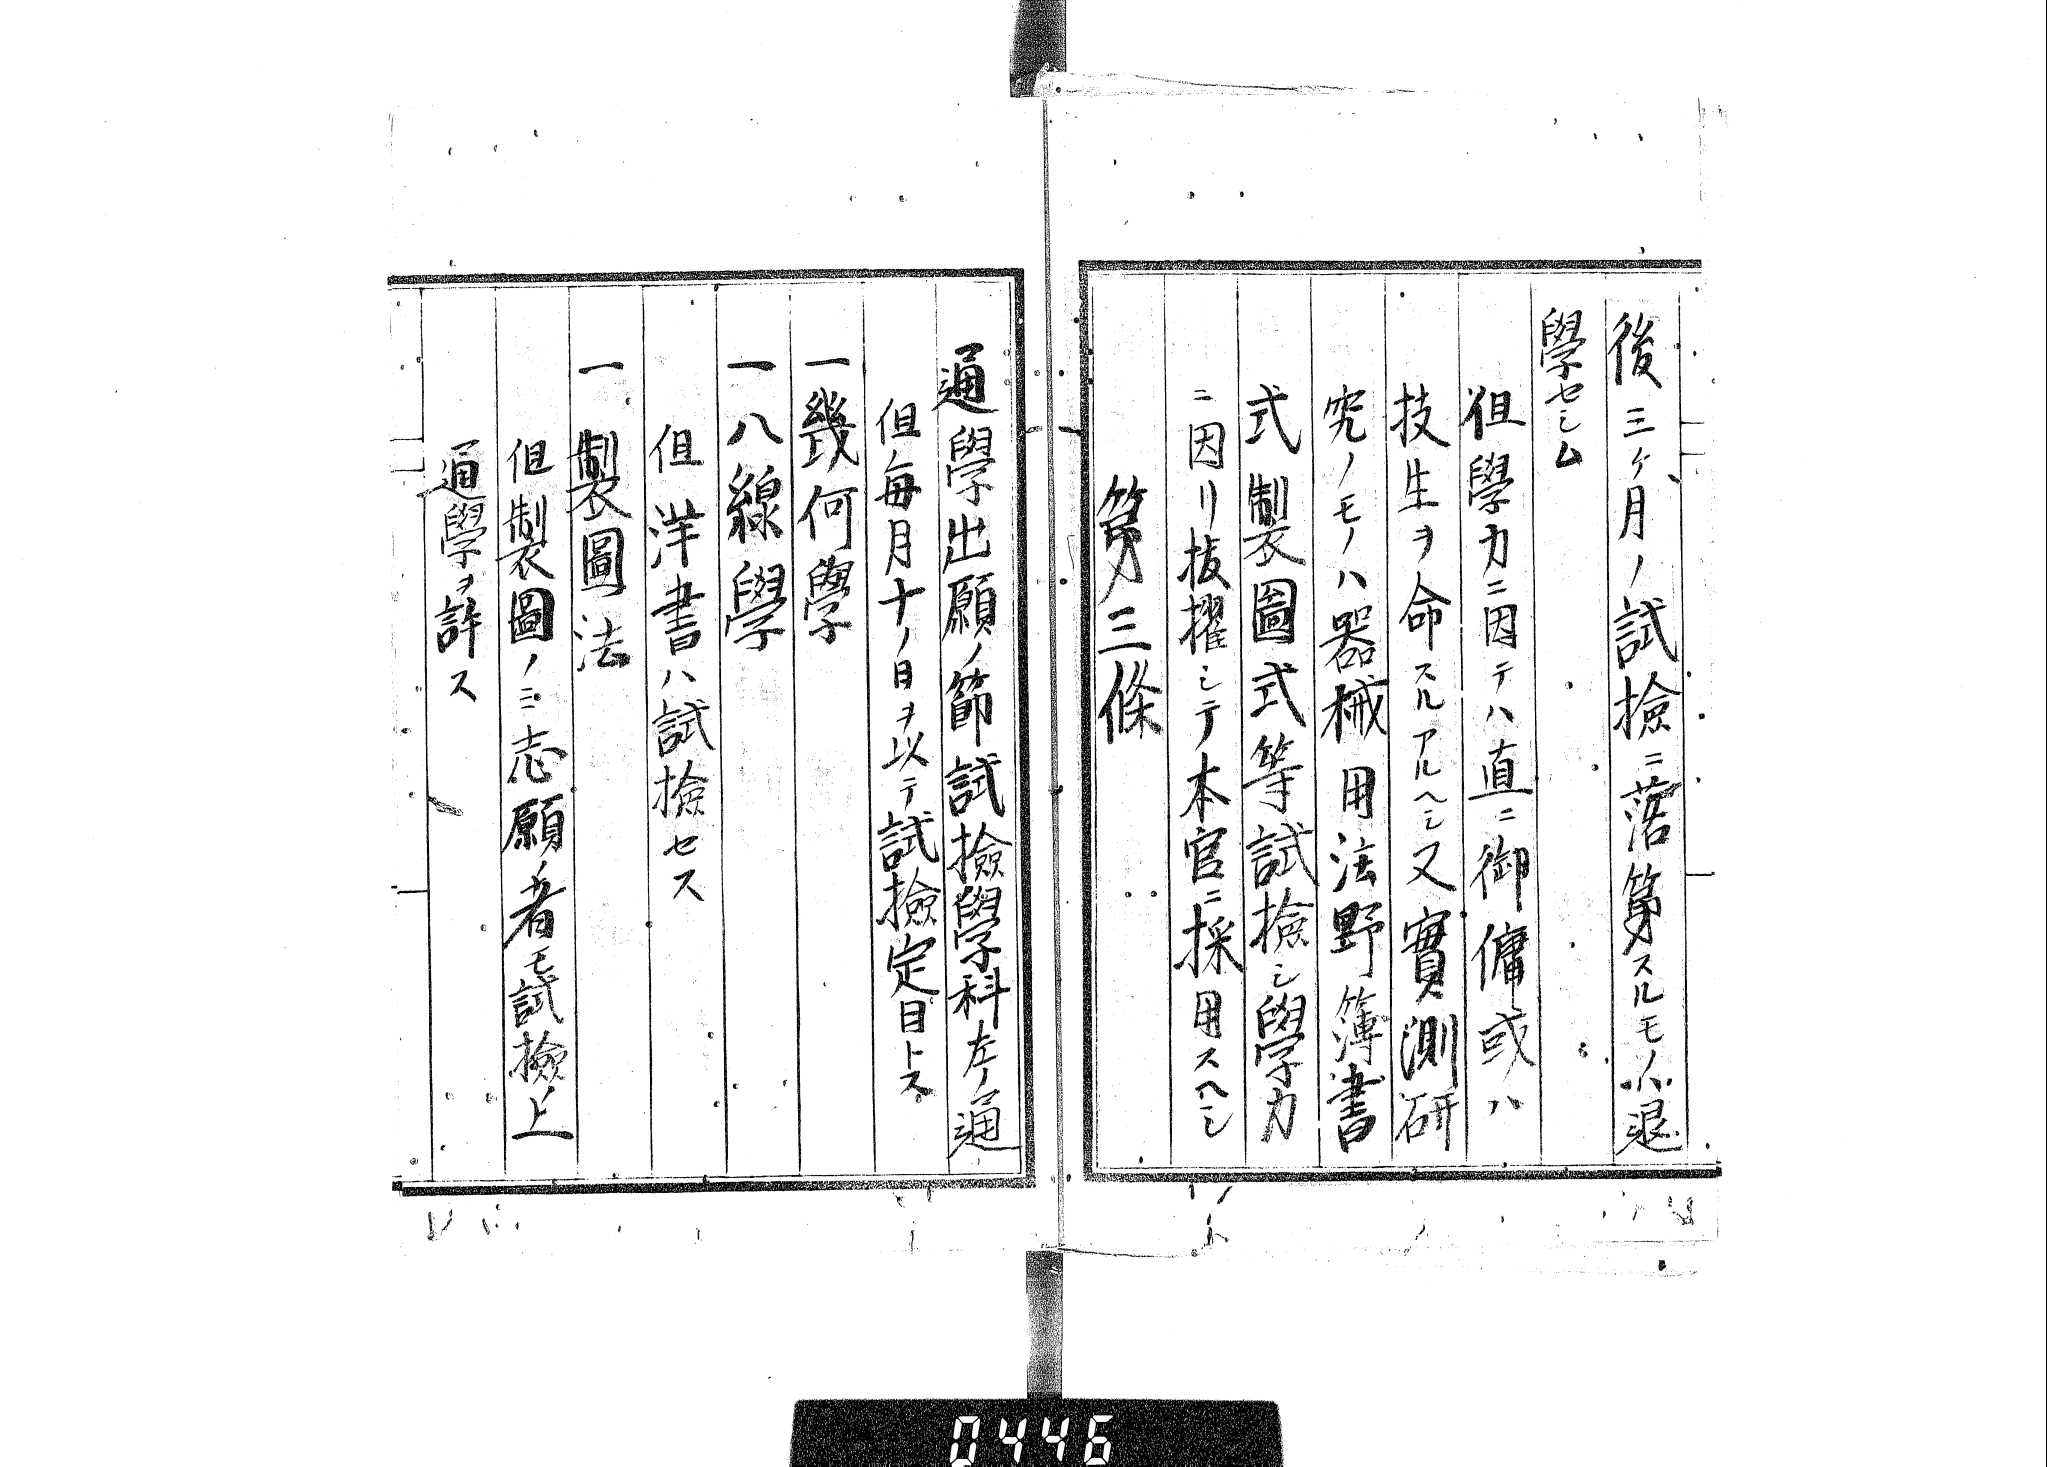 後三ケ月ノ試撿ニ落第スルモノハ退
學セシム
但學力ニ因テハ直ニ御傭或ハ
技生ヲ命スルアルヘシ又實測研
究ノモノハ器械用法野簿書
式製圖式等試撿シ學力
ニ因リ抜擢シテ本官ニ採用スヘシ
第三條
通學出願ノ節試撿學科左ノ通
但毎月十ノ日ヲ以テ試撿定日トス
一幾何學
一八線學
但洋書ハ試撿セス
一製圖法
但製圖ノミ志願ノ者モ試撿ノ上
通學ヲ許ス
0446